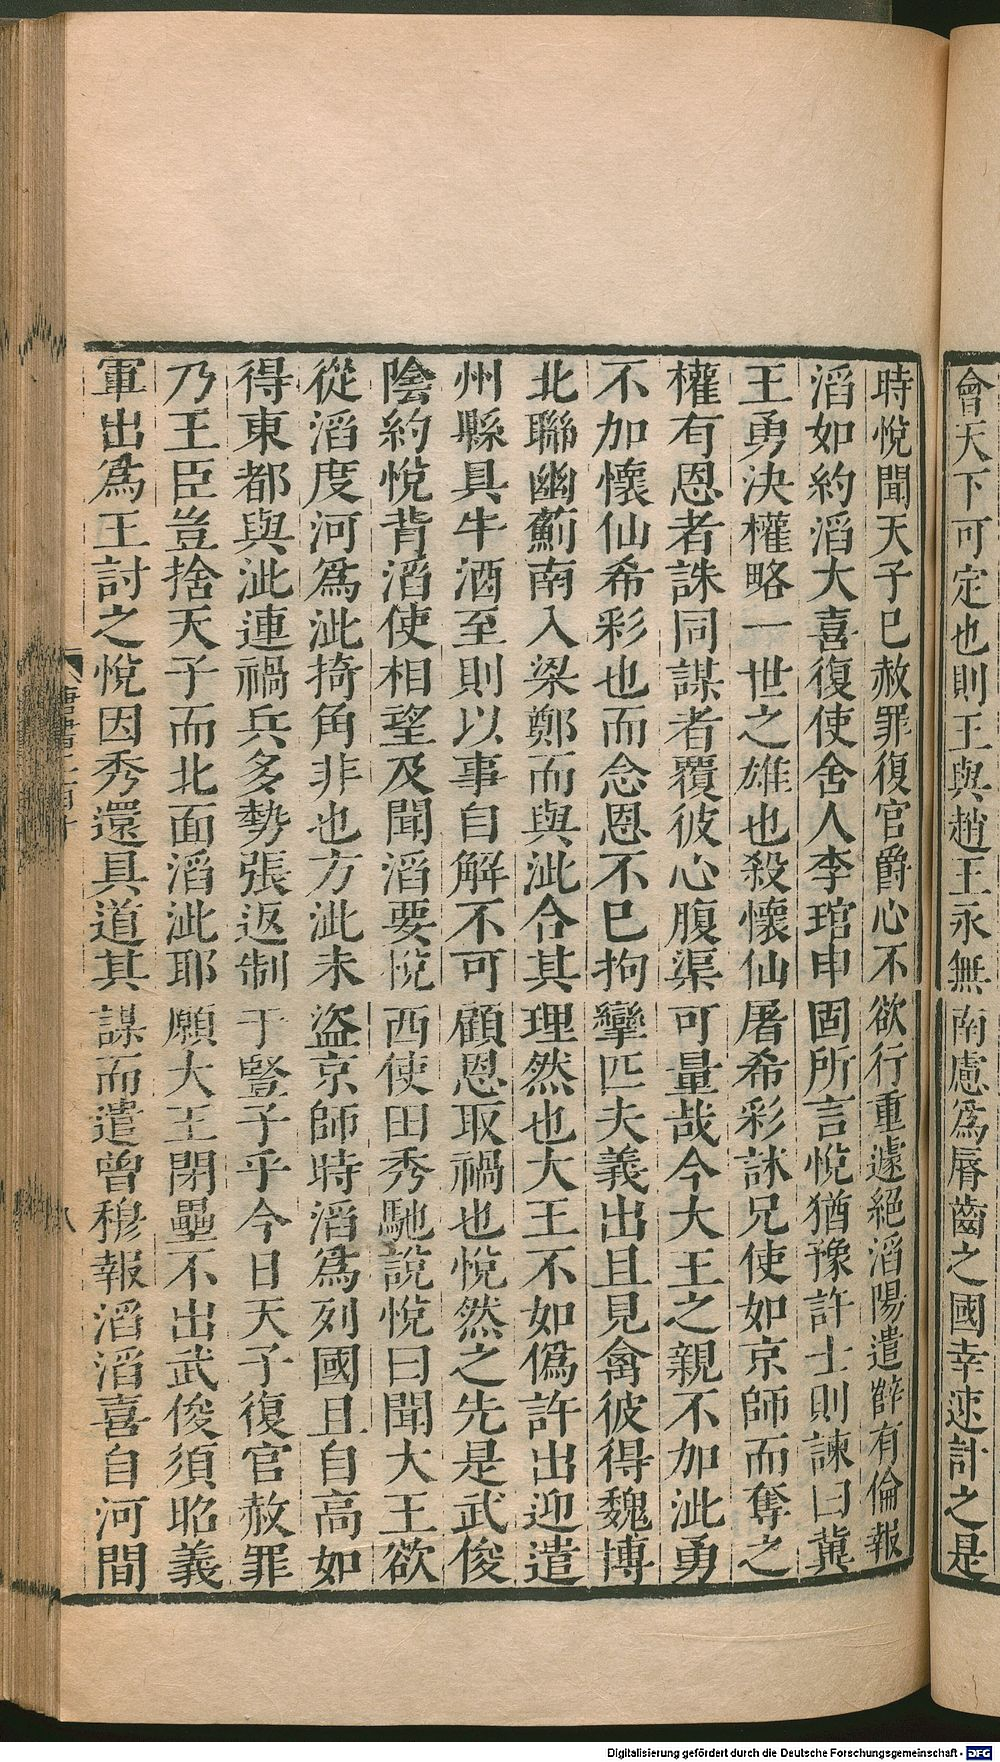 會天下可定也則王與趙王永無南慮爲脣齒之國幸速計之是
時悅聞天子已赦罪復官爵心不欲行重遽絕滔陽遣薛有倫報
滔如約滔大喜復使舍人李琯申固所言悅猶豫許士則諫曰冀
王勇決權略一世之雄也殺懷仙屠希彩訹兄使如京師而奪之
權有恩者誅同謀者覆彼心腹渠可量哉今大王之親不加泚勇
不加懷仙希彩也而念恩不已拘攣匹夫義出且見禽彼得魏博
北聯幽薊南入梁鄭而與泚合其理然也大王不如僞許出迎遣
州縣具牛酒至則以事自解不可顧恩取禍也悅然之先是武俊
陰約悅背滔使相望及聞滔要悅西使田秀馳說悅曰聞大王欲
從滔度河爲泚掎角非也方泚未盜京師時滔爲列國且自高如
得東都與泚連禍兵多勢張返制于豎子乎今日天子復官赦罪
乃王臣豈捨天子而北面滔泚耶願大王閉壘不出武俊須昭義
軍出爲王討之悅因秀還具道其謀而遣曾穆報滔滔喜自河間
唐書二百十
八
Digitalisierung gefördert durch die Deutsche Forschungsgemeinschaft - DFG